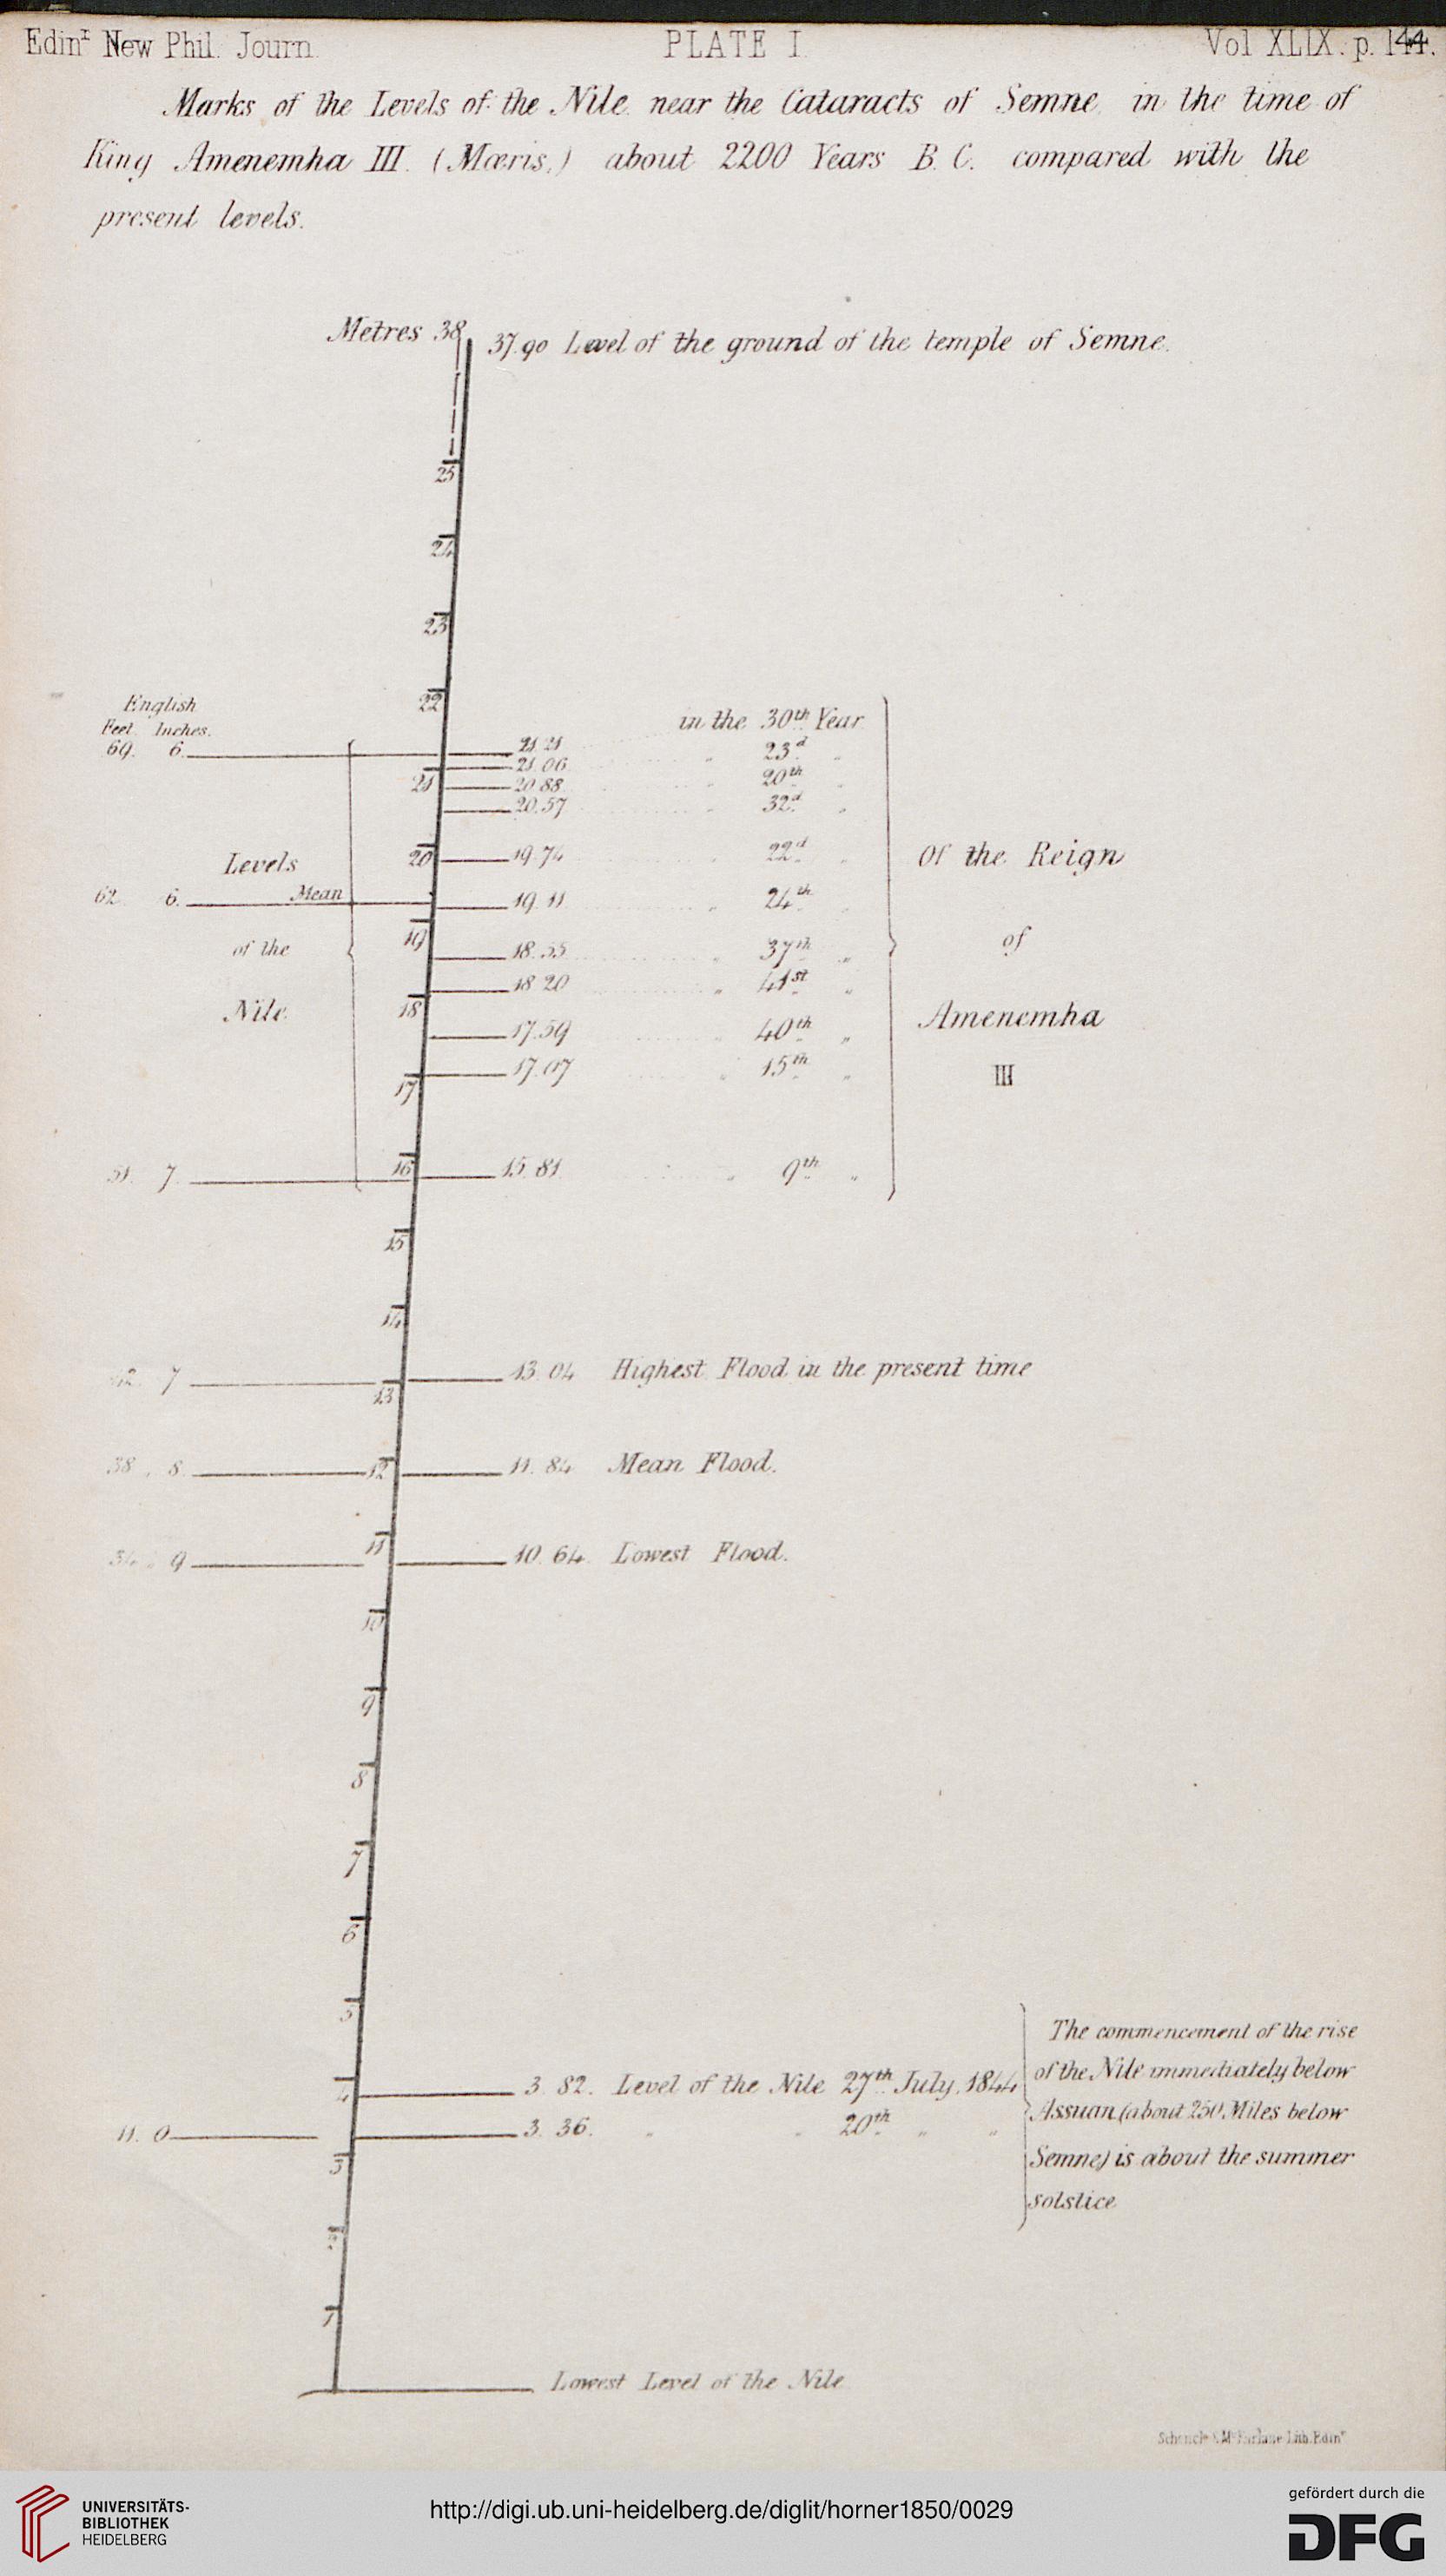 Edinr New Phil. Journ.
PLATE I.
Vol XLIX. p. 144.
Marks of the Levels of the Nile near the Cataracts of Semne, in the time of
King Amenemha III. (Mœris,) about 2200 Years B. C. compared with the
present levels.
Metres 38 37.90 Level of the ground of the temple of Semne.
25
24
23
22
English
Feet Inches.
in the 30th Year
69. 6. 21.21
21.06 „ 23d „
21 20.88 „ 20th „
20.57 „ 32d „
Levels 20 19.74 „ 22d „ Of the Reign
62. 6. Mean 19.11 „ 24th „
of the 19 18.55 „ 37th „ of
18.20 „ 41st „
Nile 18 17.59 „ 40th „ Amenemha
17.07 „ 15th „ III
17
51. 7. 16 15.81 „ 9th „
15
14
42. 7 13.04 Highest Flood in the present time
13
38. 8. 12 11.84 Mean Flood.
11
34. 9 10.64. Lowest Flood.
10
9
8
7
6
5
4 3. 82. Level of the Nile 27th July, 1844
11. 0 3. 36. „ „ 20th „ „
3
The commencement of the rise
of the Nile immediately below
Assuan (about 250 Miles below
Semne) is about the summer
solstice
2
1
Lowest Level of the Nile
Lith. Edinr
UNIVERSITÄTS-
BIBLIOTHEK
HEIDELBERG
http://digi.ub.uni-heidelberg.de/diglit/horner1850/0029
gefördert durch die
DFG